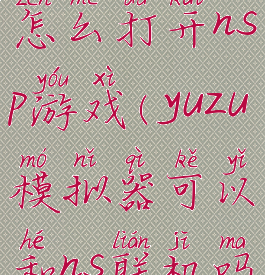 zěn me dǎ kāi
怎么打开ns
yóu xì
p游戏(yuzu
mó nǐ qì kě yǐ
模拟器可以
hé lián jī ma
和ns联机吗